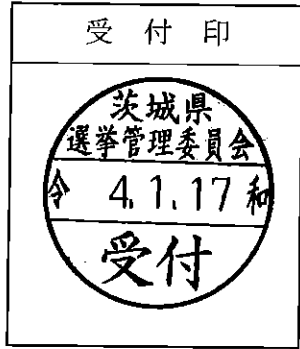 受付印
茨城県
選挙管理委員会
令 4.1.17 和
受付